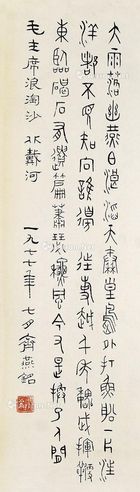 大雨落幽燕白浪滔天秦皇島外打魚船一片汪
洋都不見知向誰邊往事越千年魏武揮鞭
東臨碣石有遺篇蕭瑟秋風今又是換了人間
毛主席浪淘沙 北戴河 一九七七年七月齊燕銘